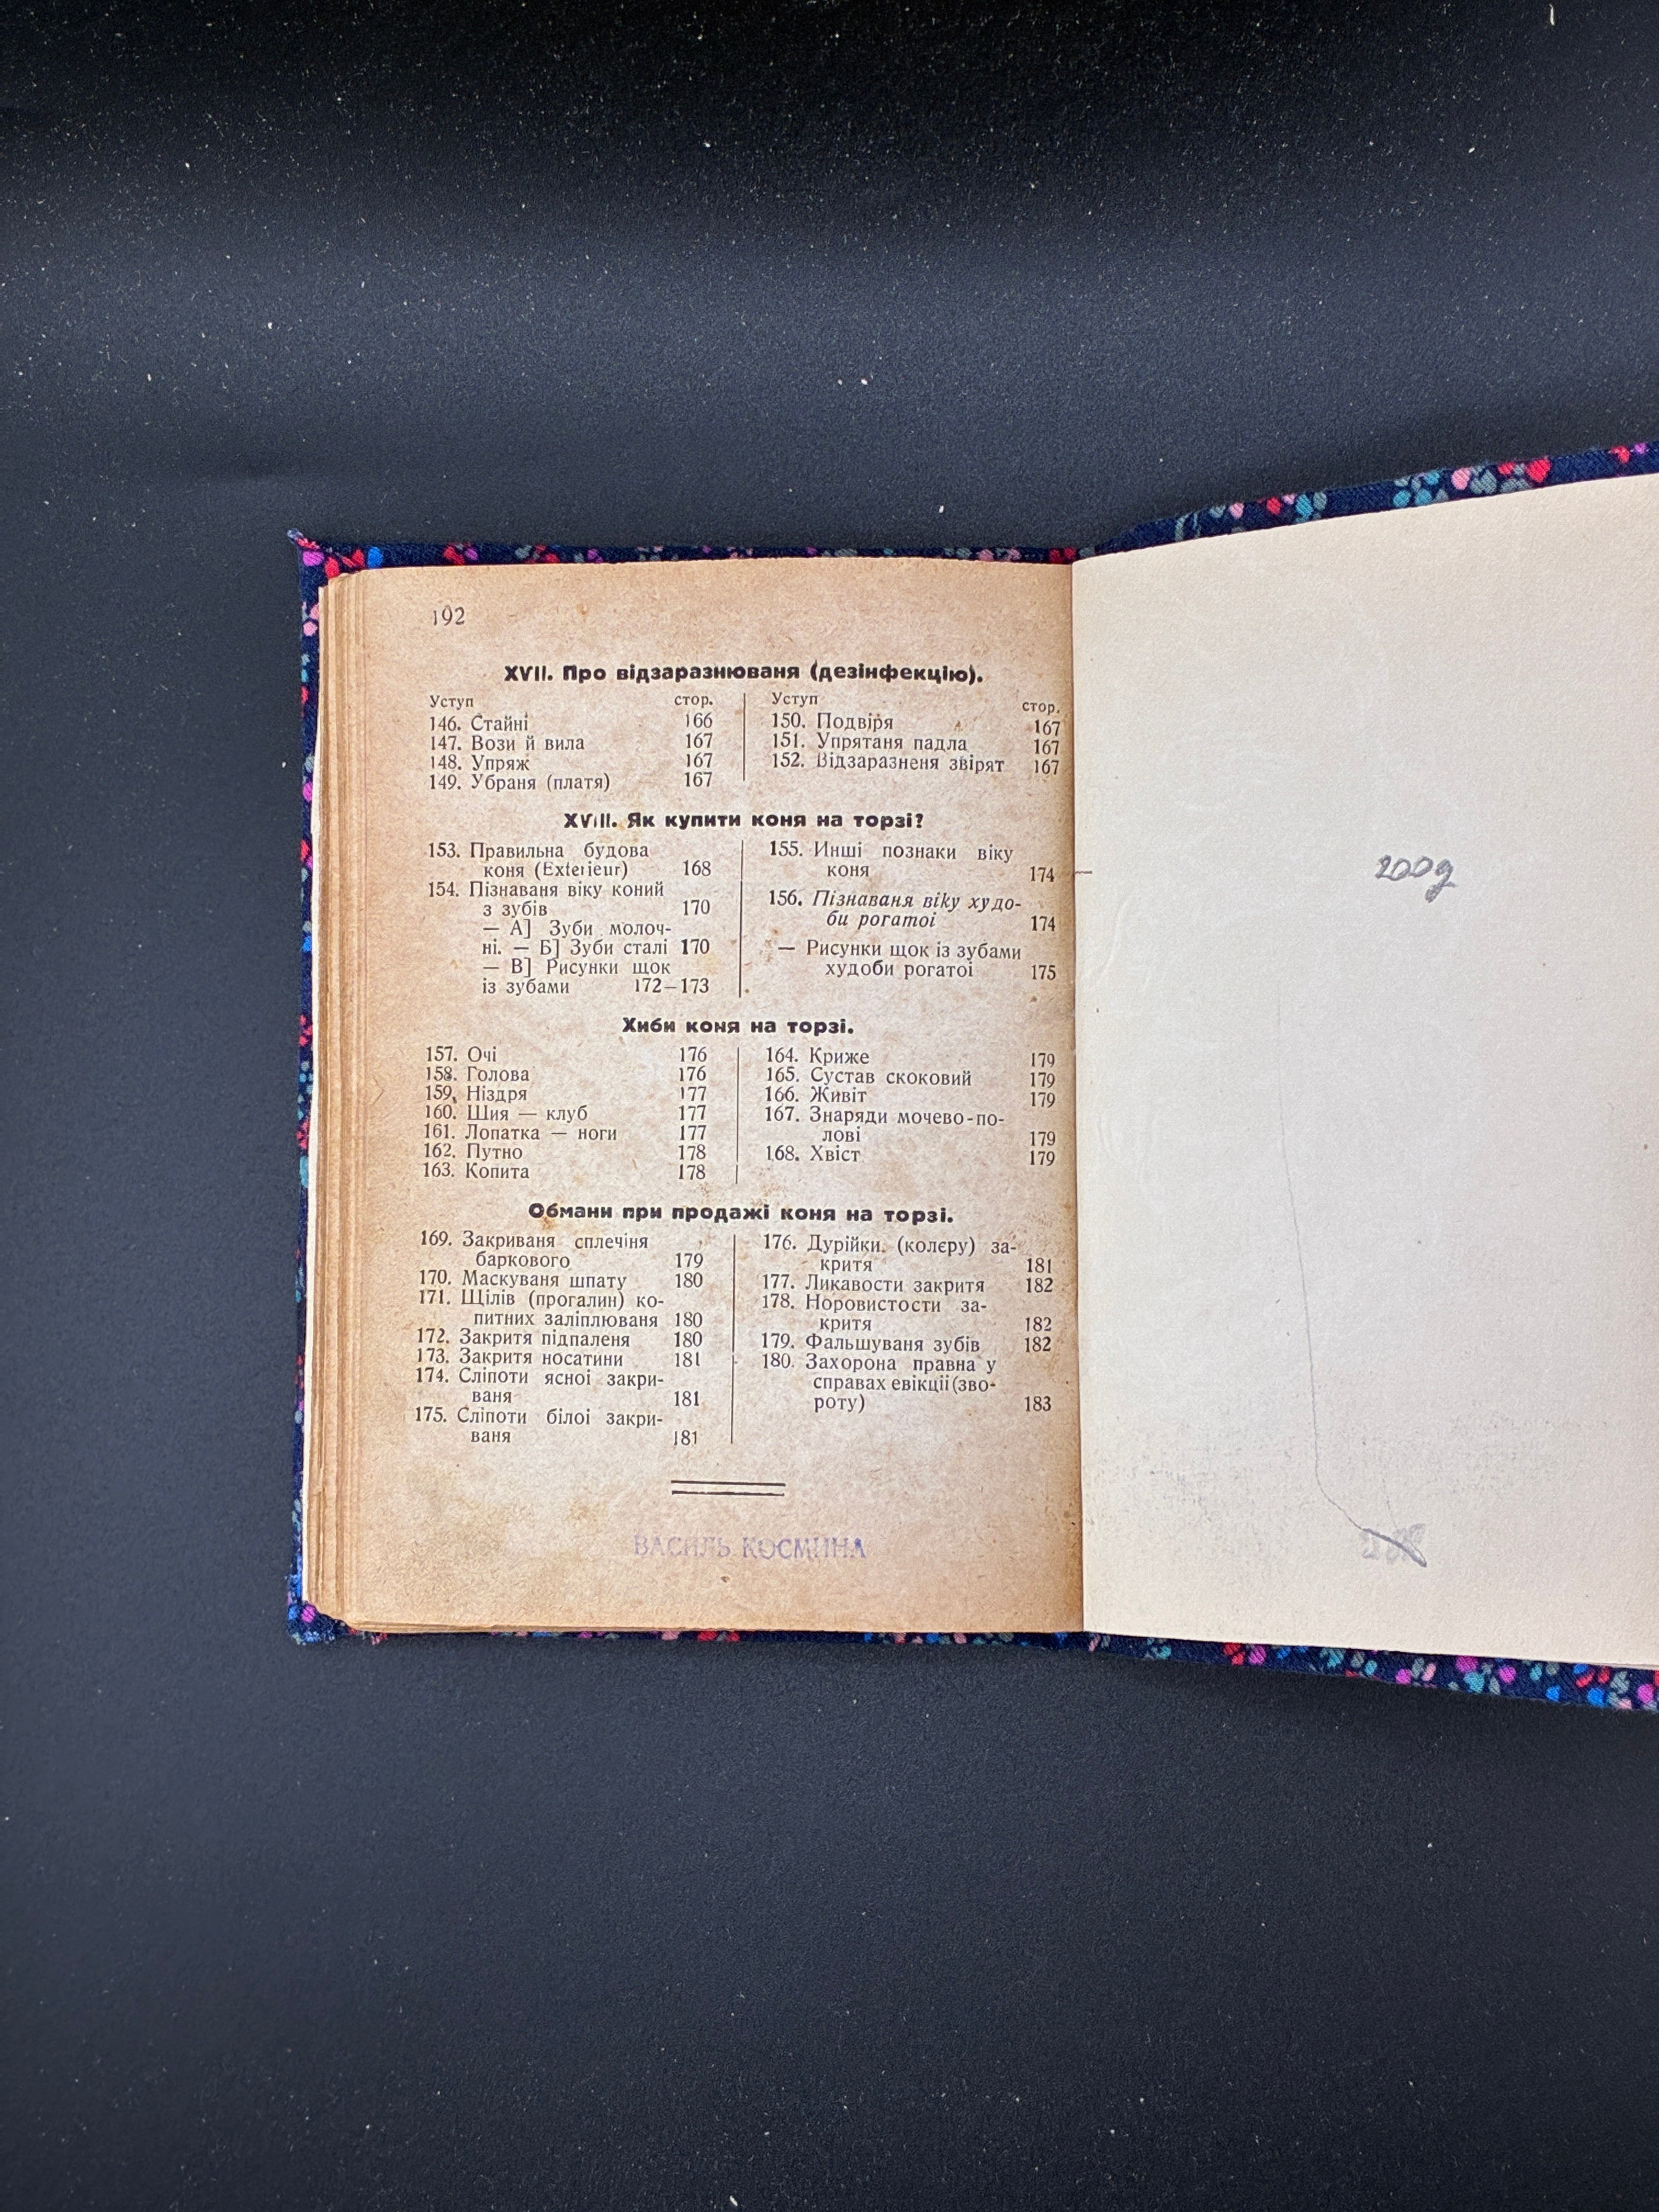 192
XVII. Про відзаразнюваня (дезінфекцію).
Уступ стор.
146. Стайні 166
147. Вози й вила 167
148. Упряж 167
149. Убраня (платя) 167
Уступ стор.
150. Подвіря 167
151. Упрятаня падла 167
152. Відзаразненя звірят 167
XVIII. Як купити коня на торзі?
153. Правильна будова
коня (Exterieur) 168
154. Пізнаваня віку коний
з зубів 170
— А] Зуби молоч-
ні. — Б] Зуби сталі 170
— В] Рисунки щок
із зубами 172—173
155. Инші познаки віку
коня 174
156. Пізнаваня віку худо-
би рогатої 174
— Рисунки щок із зубами
худоби рогатої 175
Хиби коня на торзі.
157. Очі 176
158. Голова 176
159. Ніздря 177
160. Шия — клуб 177
161. Лопатка — ноги 177
162. Путно 178
163. Копита 178
164. Криже 179
165. Сустав скоковий 179
166. Живіт 179
167. Знаряди мочево-по-
лові 179
168. Хвіст 179
Обмани при продажі коня на торзі.
169. Закриваня сплечіня
баркового 179
170. Маскуваня шпату 180
171. Щілів (прогалин) ко-
питних заліплюваня 180
172. Закритя підпаленя 180
173. Закритя носатини 181
174. Сліпоти ясної закри-
ваня 181
175. Сліпоти білої закри-
ваня 181
176. Дурійки. (колєру) за-
критя 181
177. Ликавости закритя 182
178. Норовистости за-
критя 182
179. Фальшуваня зубів 182
180. Захорона правна у
справах евікції (зво-
роту) 183
ВАСИЛЬ КОСМИНА
200д